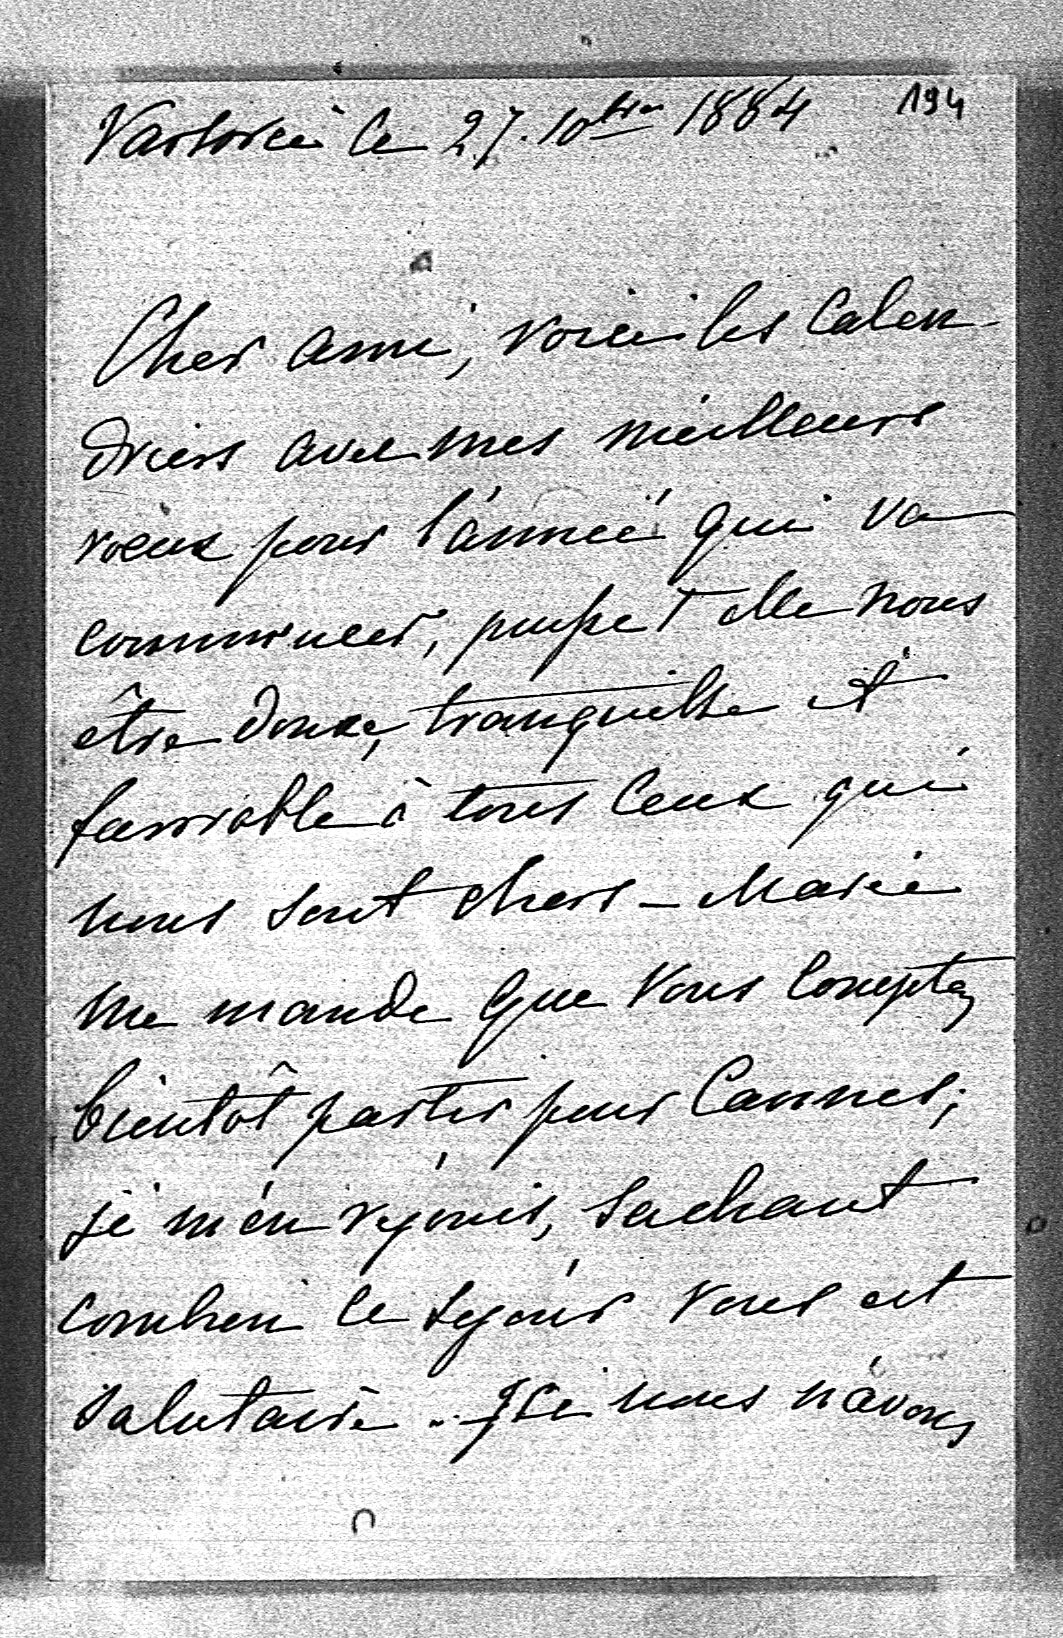 Varsovie le 27. 10bre 1884
194
Cher ami, voici les calen-
driers avec mes meilleurs
voeux pour l'année qui va
commencer, puisse t elle nous
être douce, tranquille et
favorable à tous ceux qui
nous sont chers _ Marie
me mande que vous comptez
bientôt partir pour Cannes;
je m'en rejouis, sachant
combien ce sejour vous est
salutaire .. Ici nous n'avons